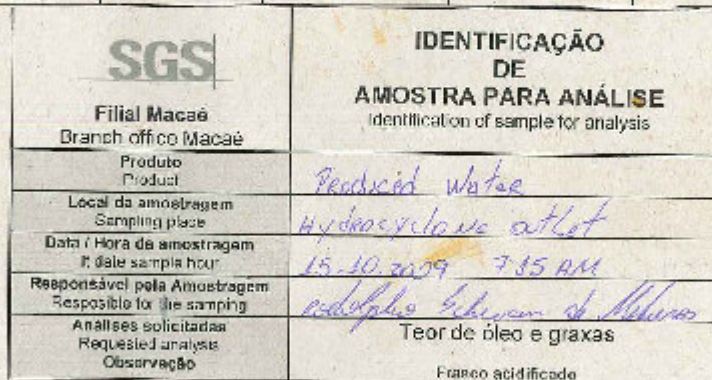 SGS
Filial Macaé
Branch office Macaé
IDENTIFICAÇÃO
DE
AMOSTRA PARA ANÁLISE
Identification of sample for analysis
Produto
Product
Produced Water
Local da amostragem
Sampling place
Hydrocyclone outlet
Data / Hora da amostragem
date sample hour
15.10.2009 7:15 AM
Responsável pela Amostragem
Resposible for the samping
Rodolpho
Análises solicitadas
Requested analysis
Teor de óleo e graxas
Observação
Frasco acidificado